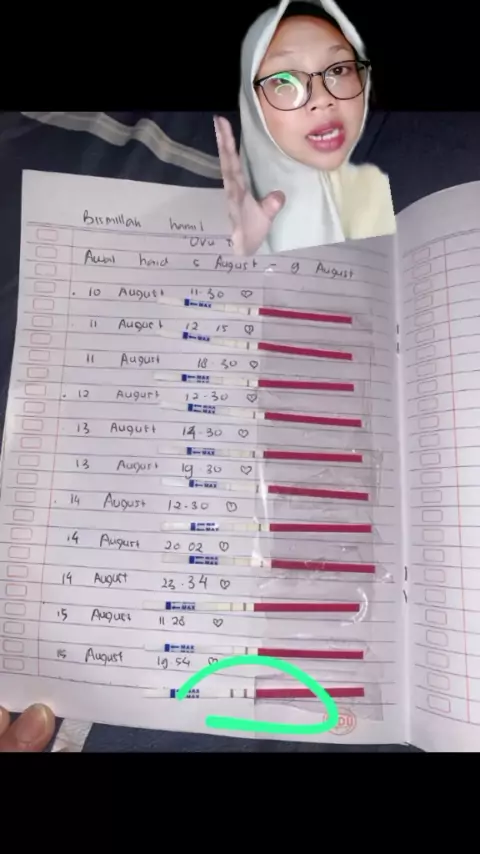 Bismillah hamil
"OVU
Awal haid 5 August - 9 August
. 10 August 11.30 ♡
MAX
11 August 12 15 ♡
MAX
11 August 18.30 ♡
MAX
. 12 August 12.30 ♡
MAX
13 August 14.30 ♡
MAX
13 August 19.30 ♡
MAX
. 14 August 12.30 ♡
MAX
14 August 20 02 ♡
MAX
14 August 23.34 ♡
MAX
15 August 11 28 ♡
MAX
15 August 19 54 ♡
MAX